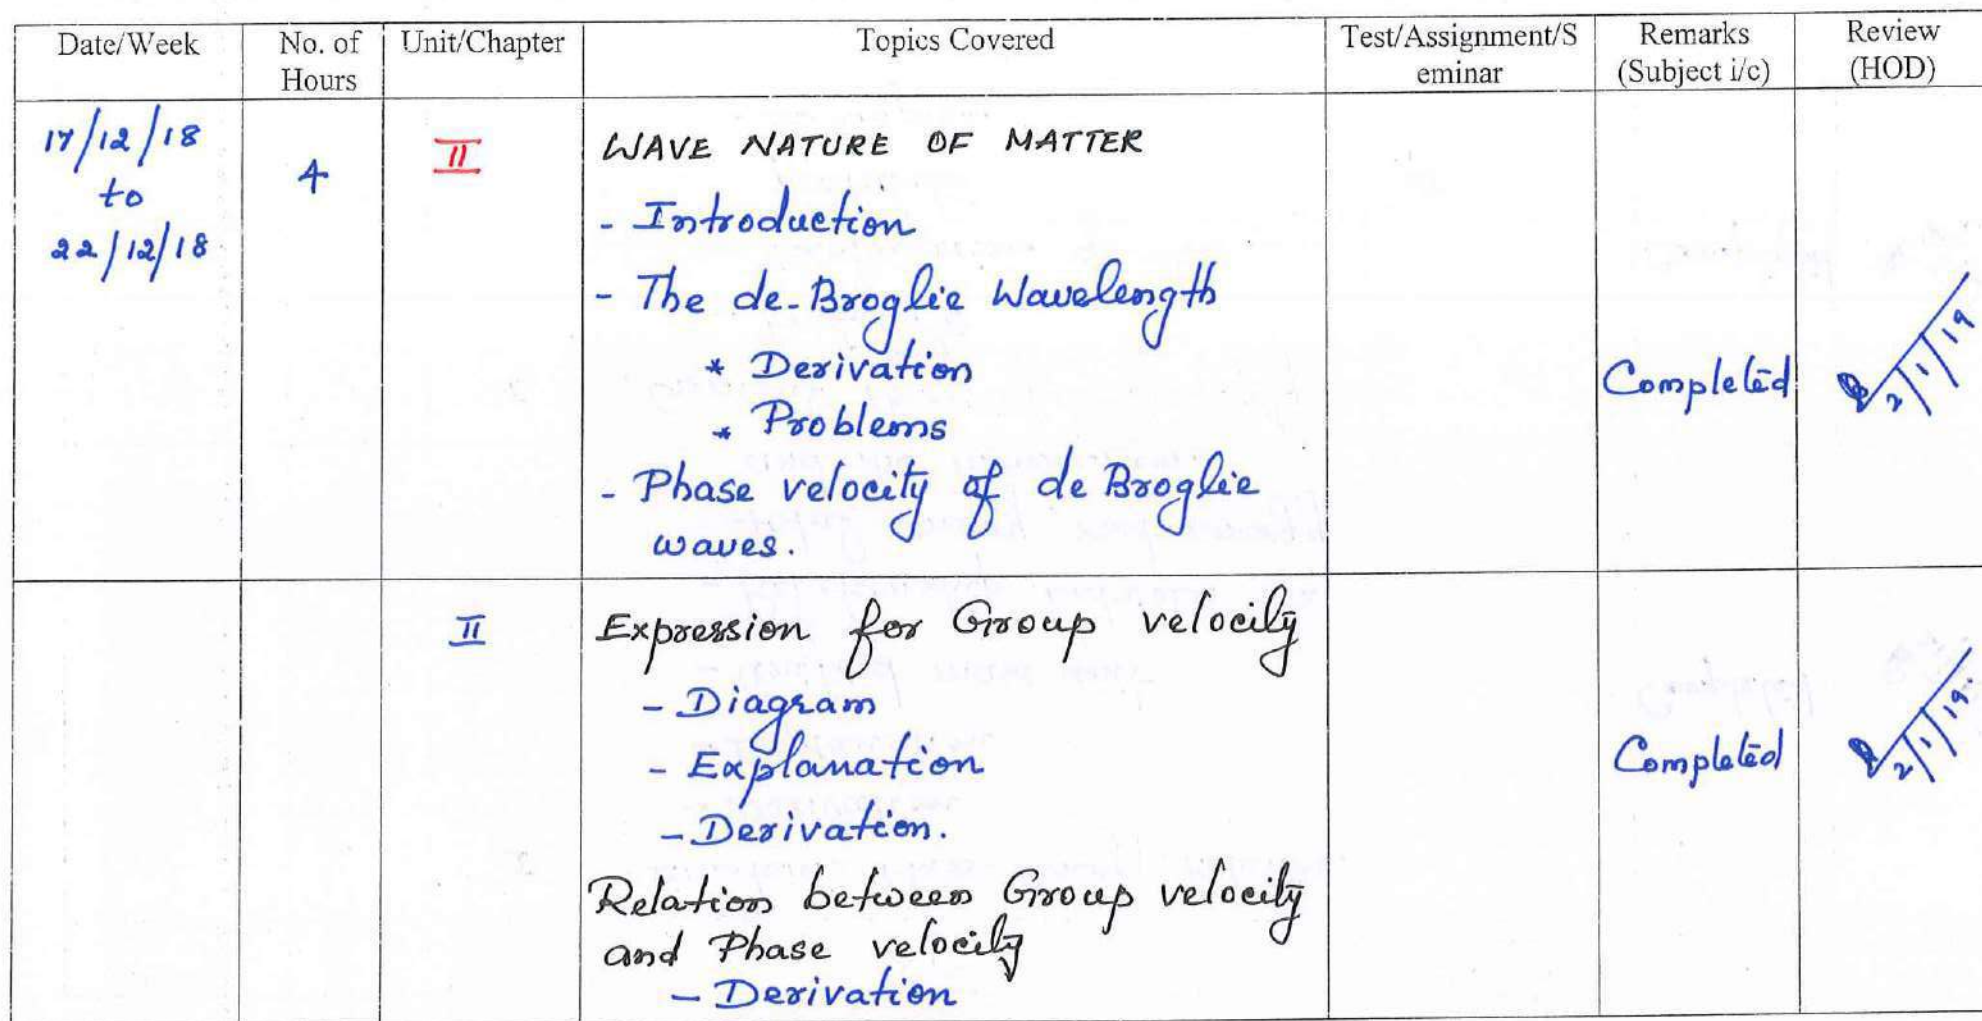 Date/Week No. of Hours Unit/Chapter Topics Covered Test/Assignment/S eminar Remarks (Subject i/c) Review (HOD)
17/12/18
to
22/12/18
4
II
WAVE NATURE OF MATTER
- Introduction
- The de-Broglie Wavelength
* Derivation
* Problems
- Phase velocity of de Broglie
waves.
Completed
2/1/19
II
Expression for Group velocity
- Diagram
- Explanation
- Derivation.
Relation between Group velocity
and Phase velocity
- Derivation
Completed
2/1/19.